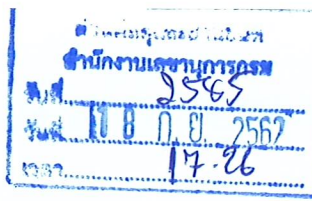 สำนักงานเลขานุการกรม
รับที่ 2585
วันที่ 18 ก.ย. 2562
เวลา 17.26